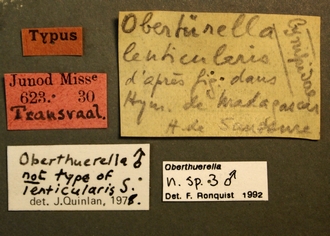 Typus
Junod Misse
623. 30
Transvaal.
Obertürella
lenticularis
d'après fig. dans
Hym. de Madagascar
H. de Saussure
Cynipidae
Oberthuerella ♂
not type of
lenticularis S.
det. J.Quinlan, 1978.
Oberthuerella
n. sp. 3 ♂
Det. F. Ronquist 1992